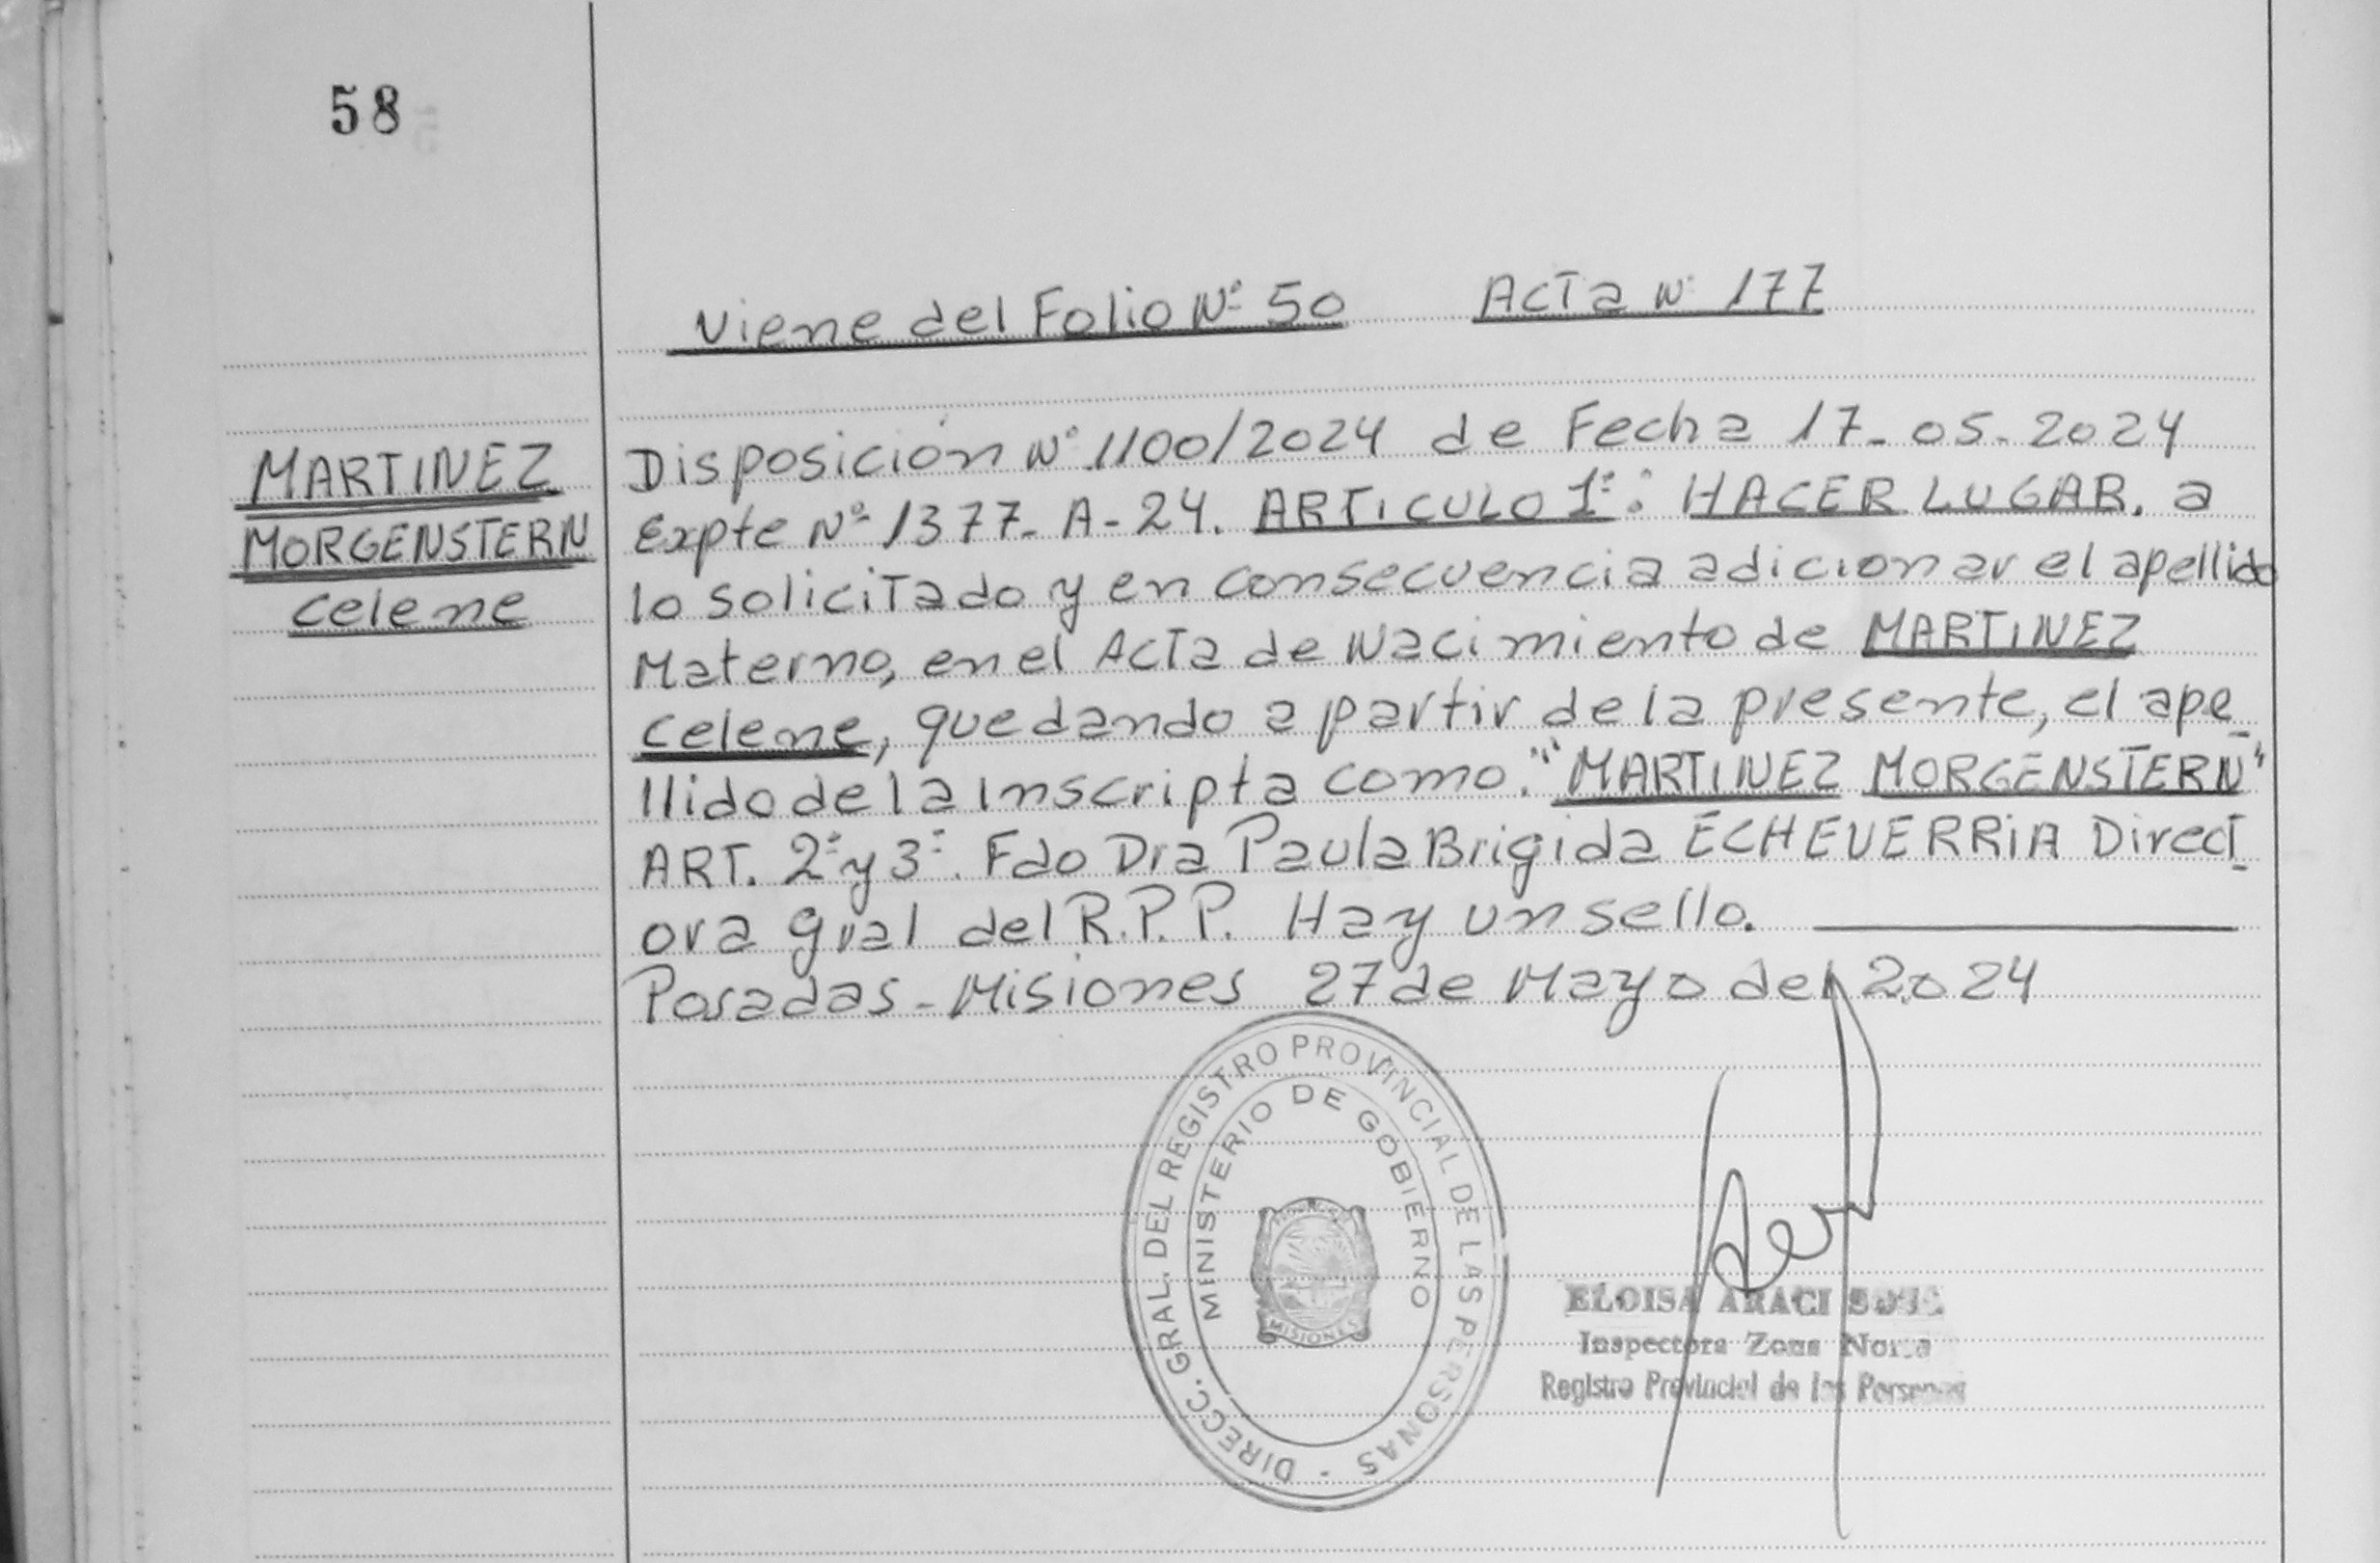 58
Viene del Folio Nº 50 Acta Nº 177
MARTINEZ
MORGENSTERN
Celene
Disposición Nº 1100/2024 de Fecha 17-05-2024
Expte Nº 1377-A-24. ARTICULO 1º: HACER LUGAR. a
lo solicitado y en consecuencia adicionar el apellido
Materno, en el Acta de Nacimiento de MARTINEZ
Celene, quedando a partir de la presente, el ape_
llido de la Inscripta como. "MARTINEZ MORGENSTERN"
ART. 2º y 3º. Fdo Dra Paula Brigida ECHEVERRIA Direct_
ora gral del R.P.P. Hay un sello.
Posadas-Misiones 27 de Mayo del 2024
DIRECC. GRAL. DEL REGISTRO PROVINCIAL DE LAS PERSONAS -
MINISTERIO DE GOBIERNO
MISIONES
ELOISA ARACI
Inspectora Zona
Registro Provincial de las Personas